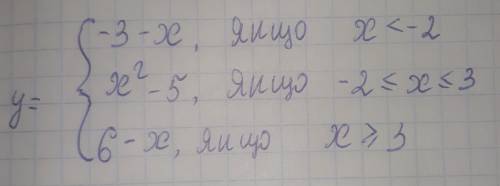 -3 - x, якщо x < -2
y= x² - 5, якщо -2 ≤ x ≤ 3
6 - x, якщо x ⩾ 3